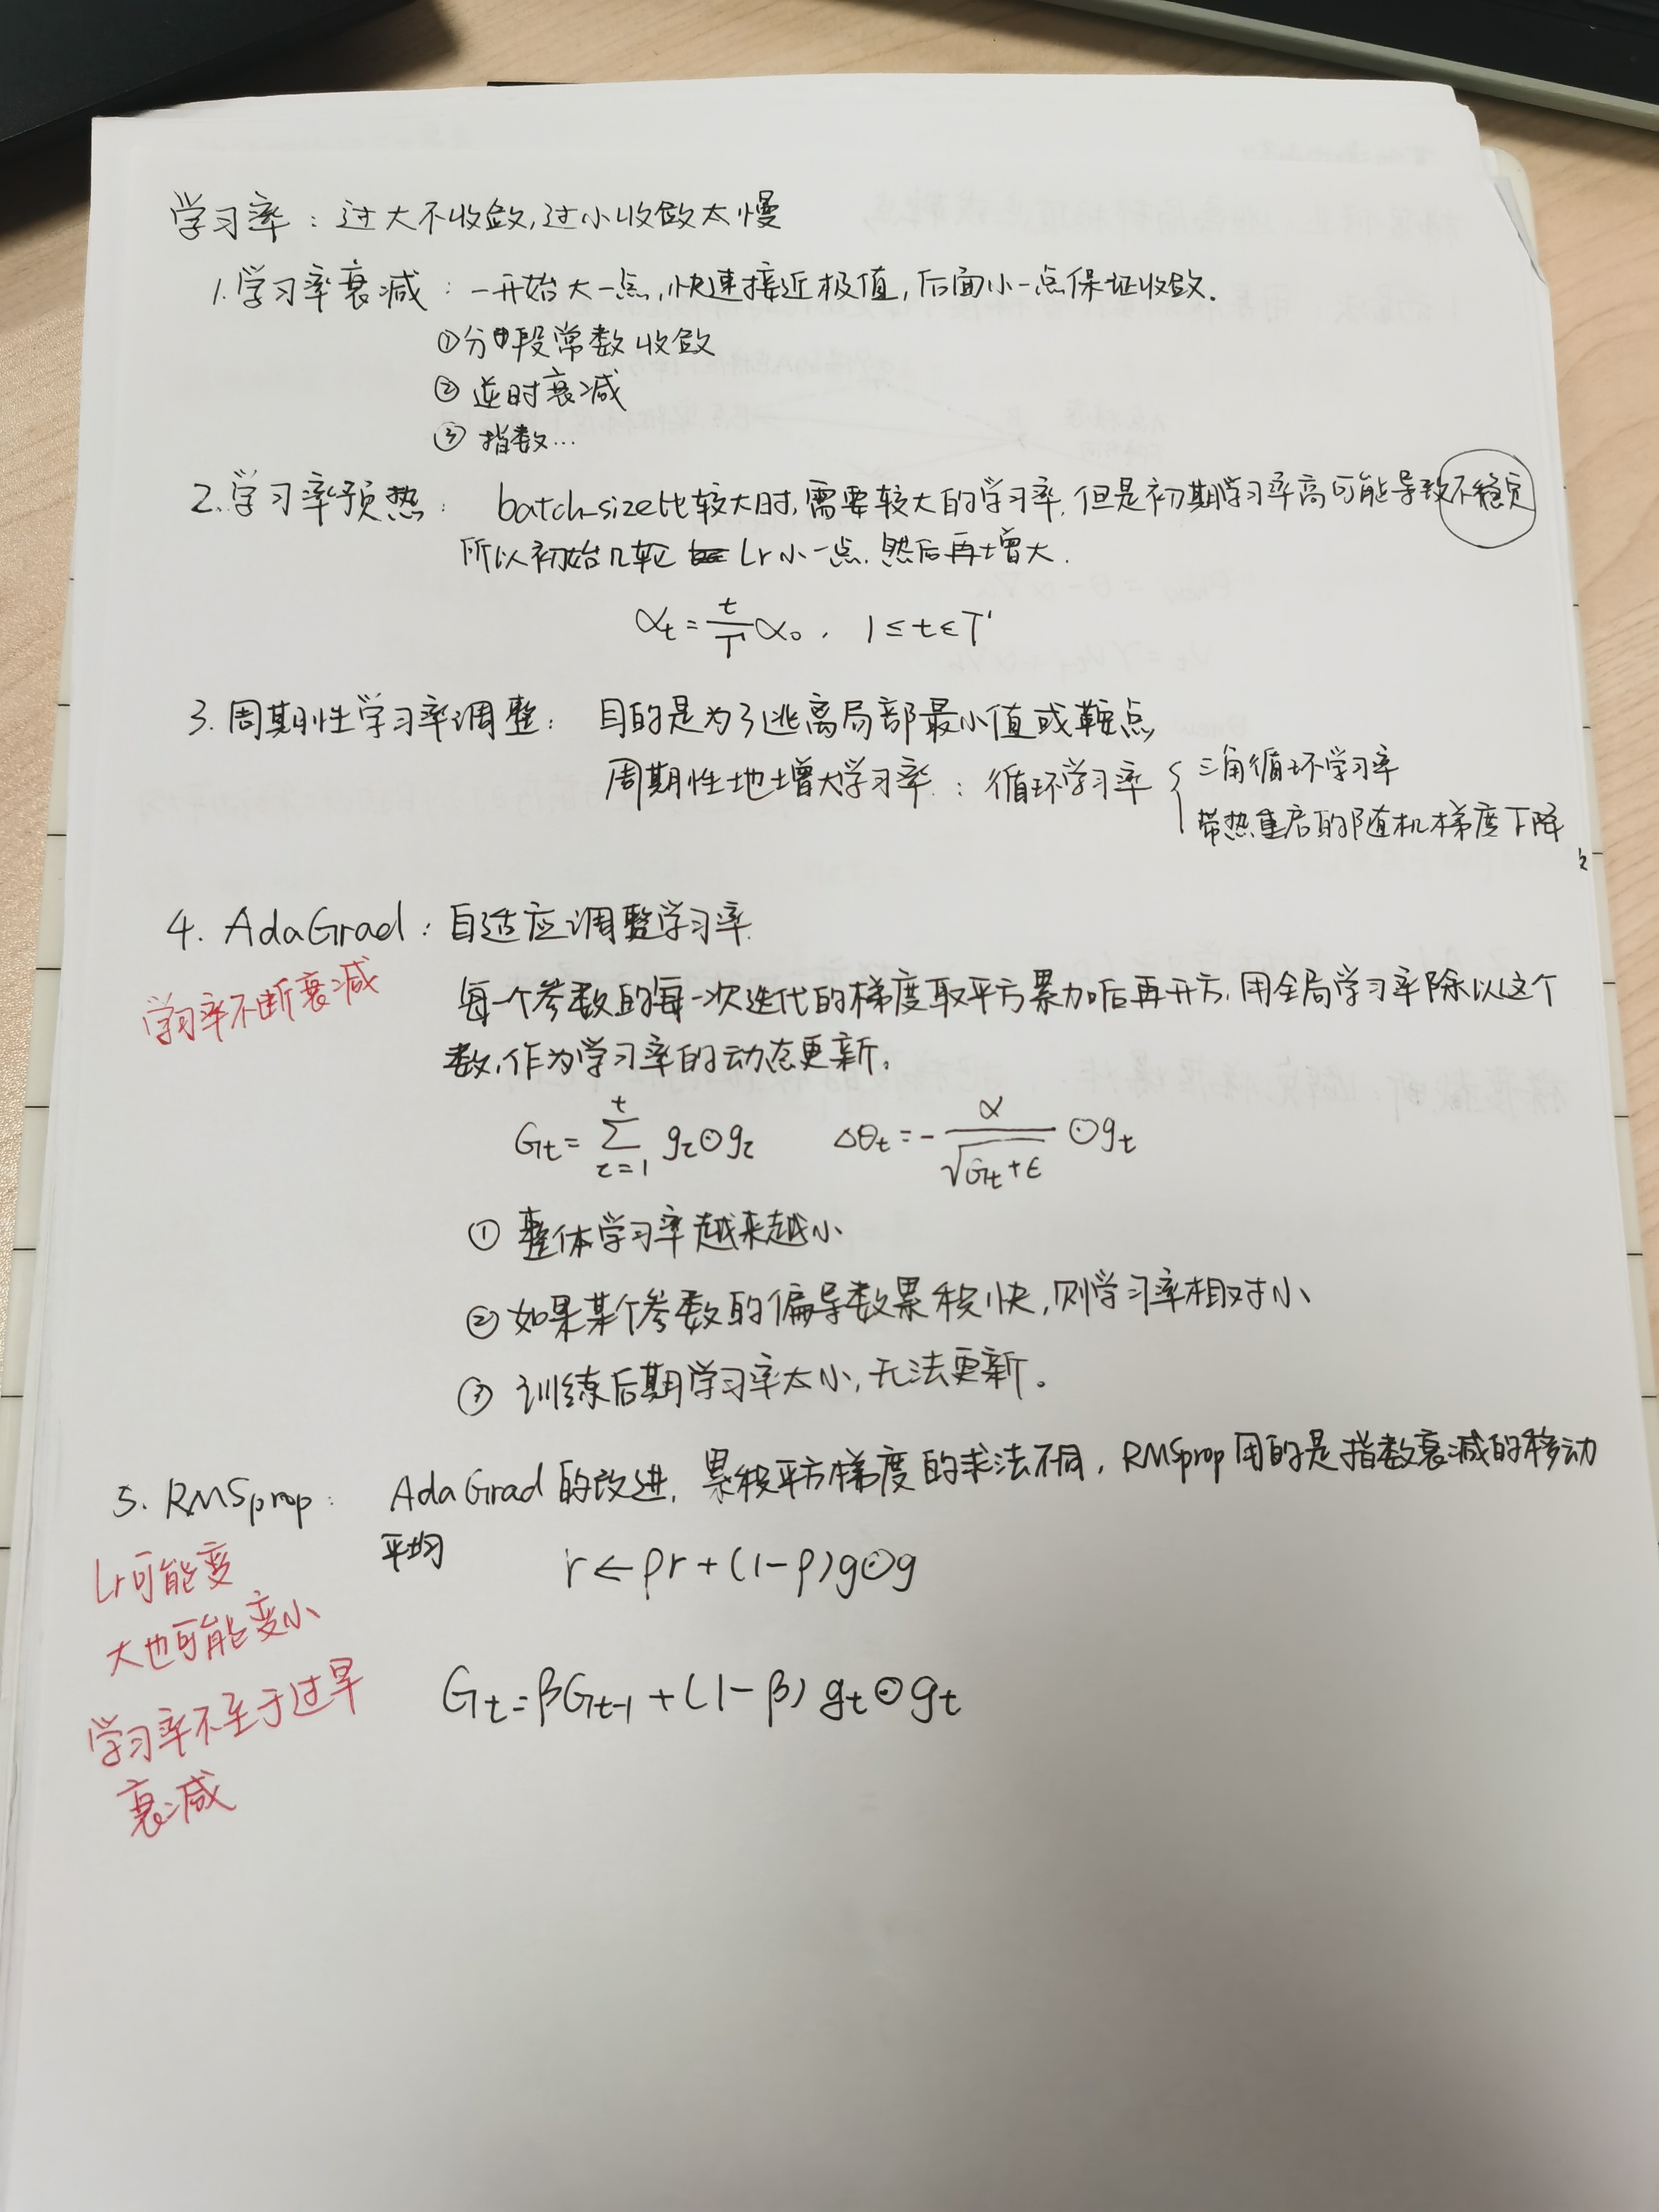 学习率：过大不收敛,过小收敛太慢
1.学习率衰减：一开始大一点,快速接近极值,后面小一点保证收敛.
①分段常数收敛
②逆时衰减
③指数...
2.学习率预热：batch_size比较大时,需要较大的学习率,但是初期学习率高可能导致不稳定
所以初始几轮 Lr小一点.然后再增大.
αt = t/T' α0 , 1≤t∈T'
3.周期性学习率调整：目的是为了逃离局部最小值或鞍点
周期性地增大学习率：循环学习率
三角循环学习率
带热重启的随机梯度下降
4. AdaGrad：自适应调整学习率.
学习率不断衰减
每一个参数的每一次迭代的梯度取平方累加后再开方,用全局学习率除以这个
数,作为学习率的动态更新。
Gt = ∑_{τ=1}^{t} gτ⊙gτ Δθt = - α/√(Gt+ε) ⊙gt
① 整体学习率越来越小
②如果某个参数的偏导数累积快,则学习率相对小
③ 训练后期学习率太小,无法更新。
5. RMSprop：AdaGrad的改进,累积平方梯度的求法不同,RMSprop用的是指数衰减的移动
平均
r ← ρr + (1-ρ)g⊙g
Lr可能变
大也可能变小
Gt = βGt-1 + (1-β) gt⊙gt
学习率不至于过早
衰减